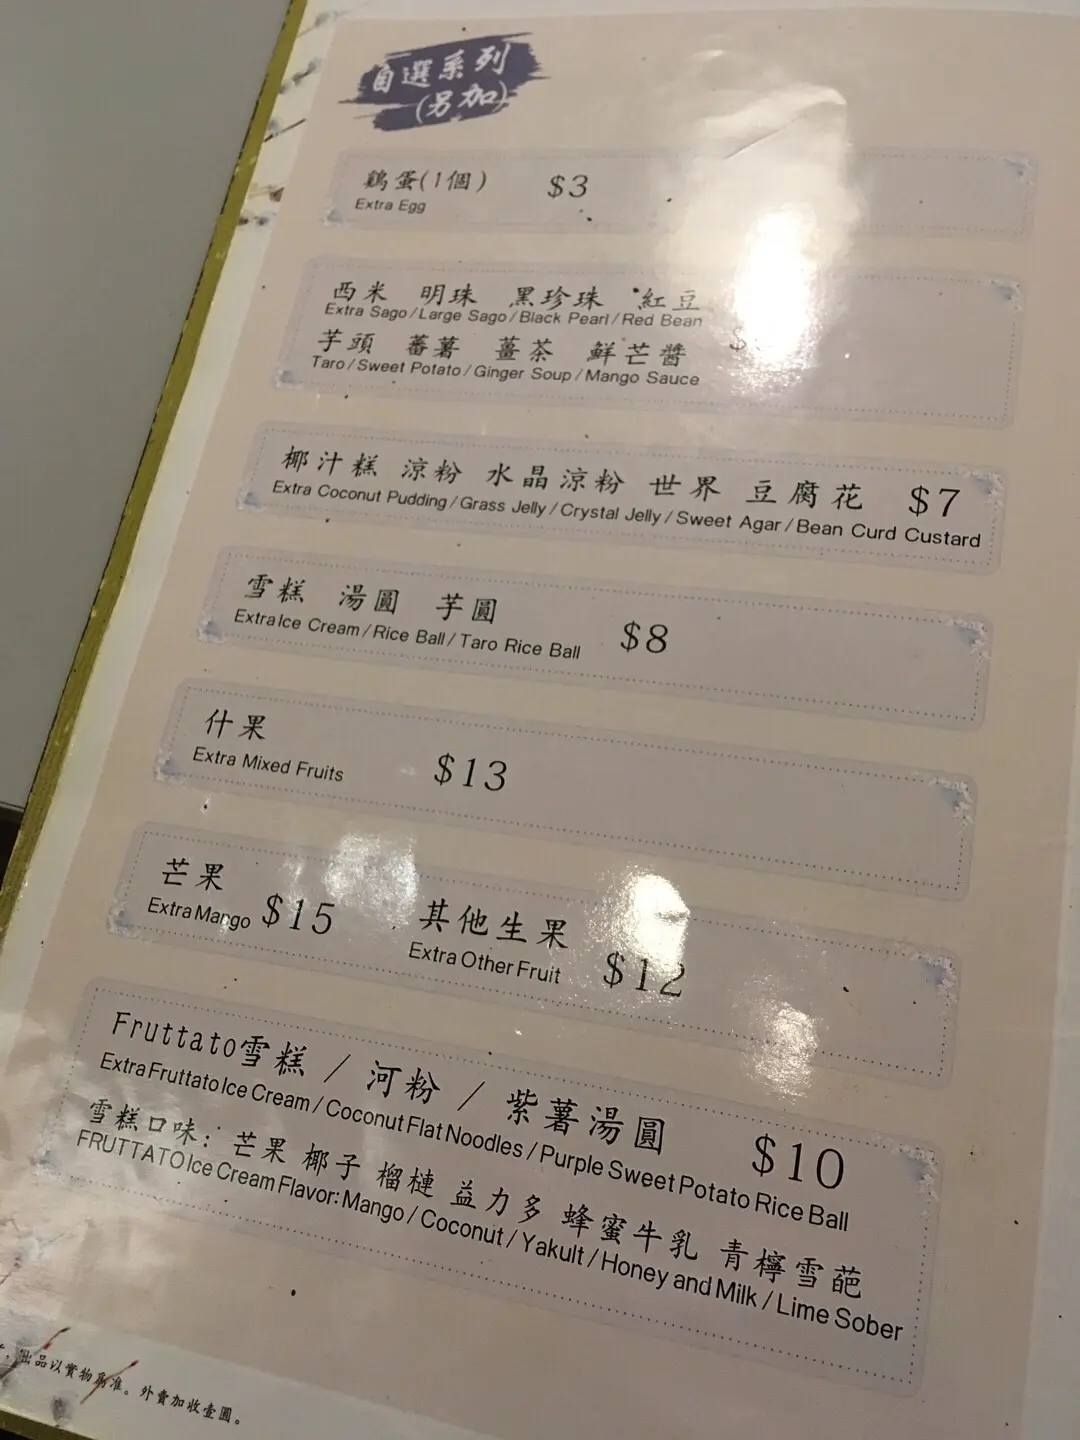 自選系列
(另加)
鷄蛋(1個) $3
Extra Egg
西米 明珠 黑珍珠 紅豆
Extra Sago/Large Sago/Black Pearl/Red Bean
芋頭 蕃薯 薑茶 鮮芒醬 $
Taro/Sweet Potato/Ginger Soup/Mango Sauce
椰汁糕 涼粉 水晶涼粉 世界 豆腐花 $7
Extra Coconut Pudding/Grass Jelly/Crystal Jelly/Sweet Agar/Bean Curd Custard
雪糕 湯圓 芋圓 $8
Extra Ice Cream/Rice Ball/Taro Rice Ball
什果
Extra Mixed Fruits $13
芒果 其他生果
Extra Mango $15 Extra Other Fruit $12
Fruttato雪糕 / 河粉 / 紫薯湯圓 $10
Extra Fruttato Ice Cream/Coconut Flat Noodles/Purple Sweet Potato Rice Ball
雪糕口味: 芒果 椰子 榴槤 益力多 蜂蜜牛乳 青檸雪葩
FRUTTATO Ice Cream Flavor: Mango/Coconut/Yakult/Honey and Milk/Lime Sober
出品以實物為准。外賣加收壹圓。